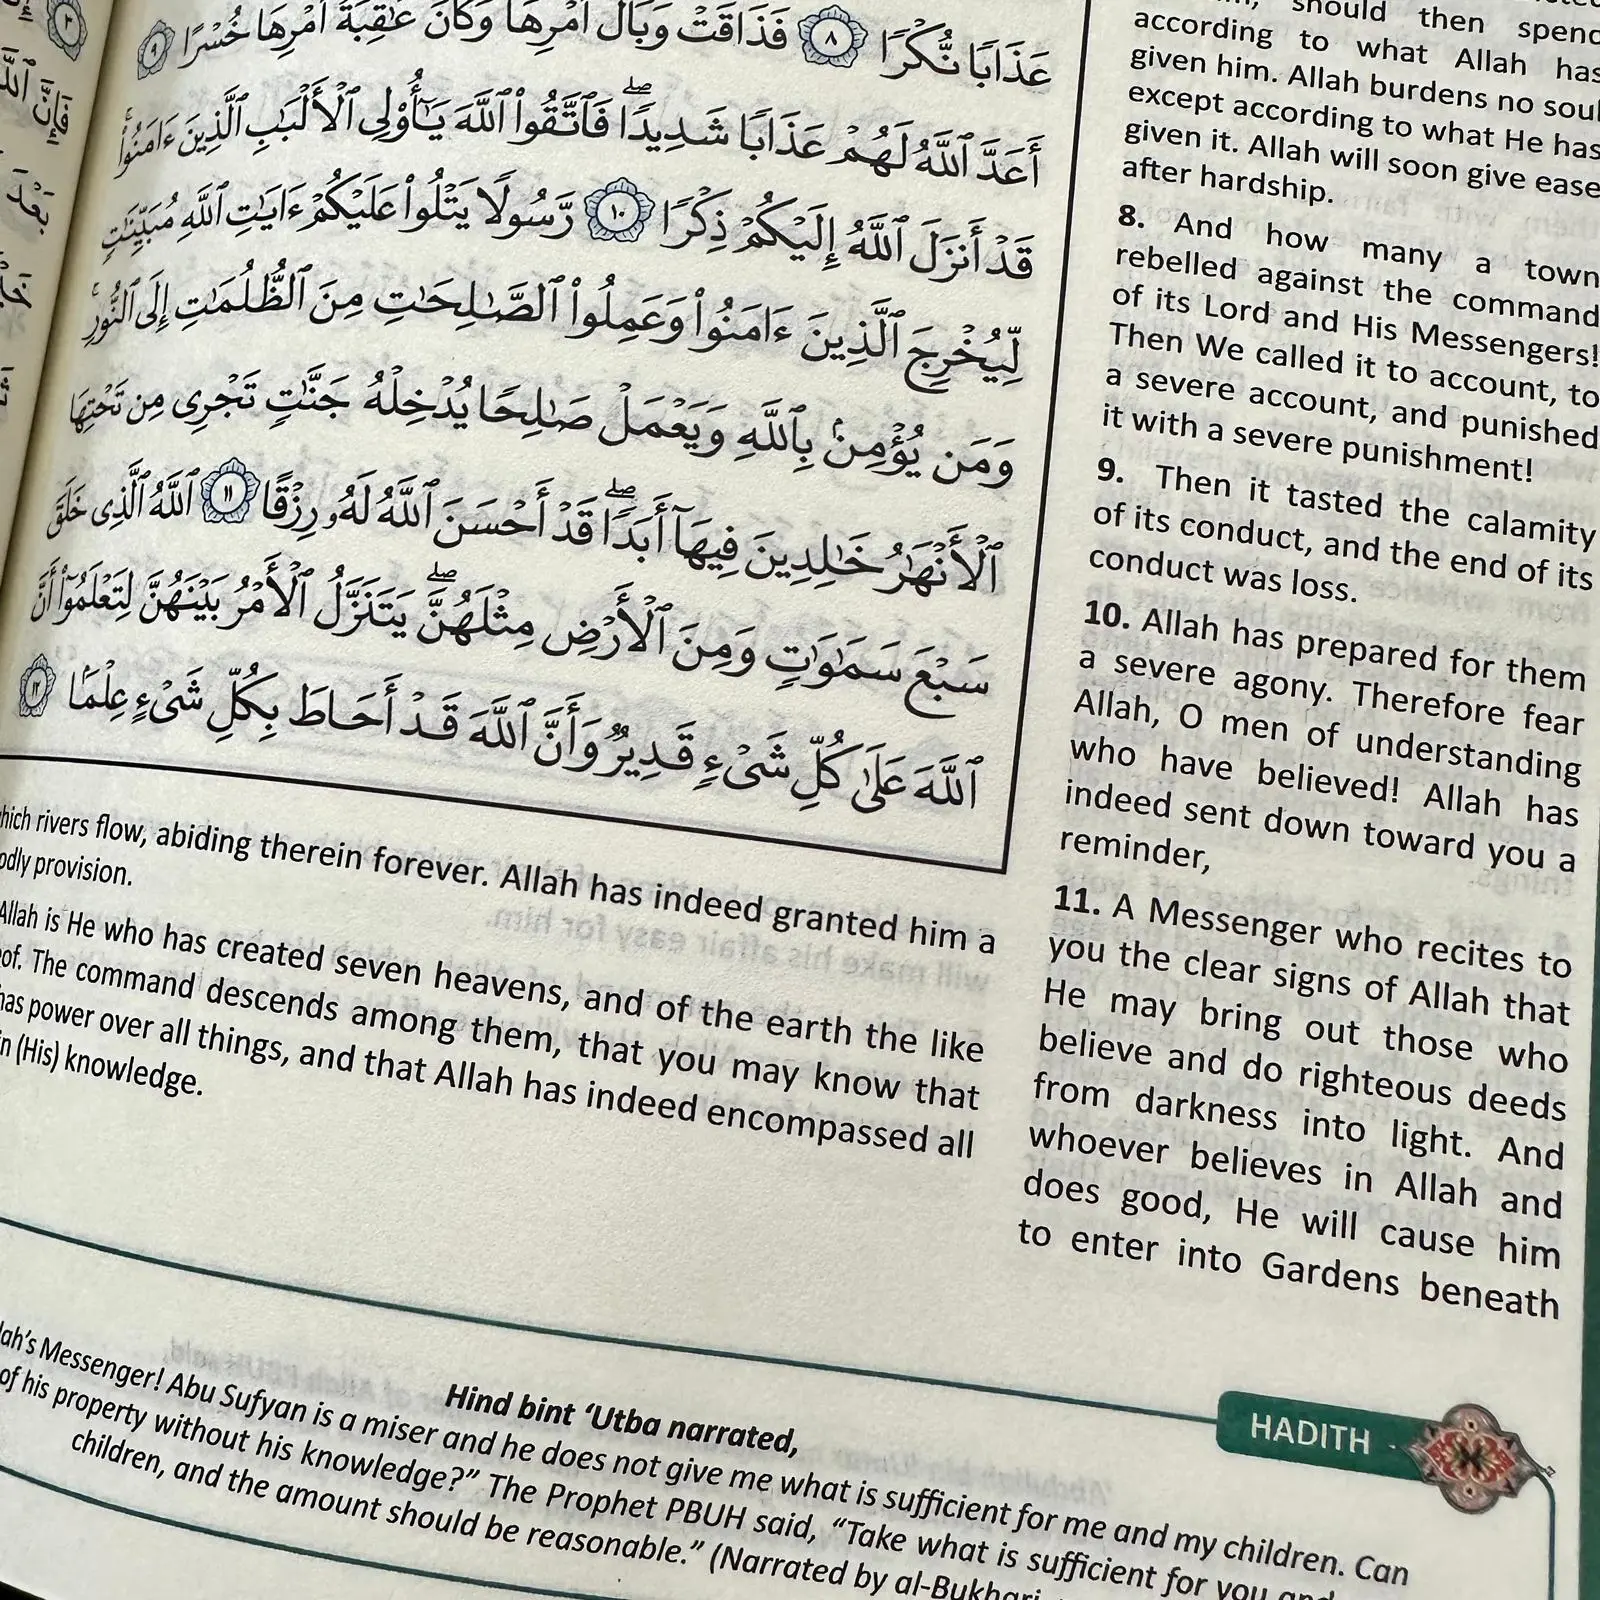 عَذَابًا نُّكْرًا ٨ فَذَاقَتْ وَبَالَ أَمْرِهَا وَكَانَ عَٰقِبَةُ أَمْرِهَا خُسْرًا ٩
أَعَدَّ ٱللَّهُ لَهُمْ عَذَابًا شَدِيدًاۖ فَٱتَّقُوا۟ ٱللَّهَ يَٰٓأُو۟لِى ٱلْأَلْبَٰبِ ٱلَّذِينَ ءَامَنُوا۟ۚ
قَدْ أَنزَلَ ٱللَّهُ إِلَيْكُمْ ذِكْرًا ١٠ رَّسُولًا يَتْلُوا۟ عَلَيْكُمْ ءَايَٰتِ ٱللَّهِ مُبَيِّنَٰتٍ
لِّيُخْرِجَ ٱلَّذِينَ ءَامَنُوا۟ وَعَمِلُوا۟ ٱلصَّٰلِحَٰتِ مِنَ ٱلظُّلُمَٰتِ إِلَى ٱلنُّورِۚ
وَمَن يُؤْمِنۢ بِٱللَّهِ وَيَعْمَلْ صَٰلِحًا يُدْخِلْهُ جَنَّٰتٍ تَجْرِى مِن تَحْتِهَا
ٱلْأَنْهَٰرُ خَٰلِدِينَ فِيهَآ أَبَدًاۖ قَدْ أَحْسَنَ ٱللَّهُ لَهُۥ رِزْقًا ١١ ٱللَّهُ ٱلَّذِى خَلَقَ
سَبْعَ سَمَٰوَٰتٍ وَمِنَ ٱلْأَرْضِ مِثْلَهُنَّۖ يَتَنَزَّلُ ٱلْأَمْرُ بَيْنَهُنَّ لِتَعْلَمُوٓا۟ أَنَّ
ٱللَّهَ عَلَىٰ كُلِّ شَىْءٍ قَدِيرٌ وَأَنَّ ٱللَّهَ قَدْ أَحَاطَ بِكُلِّ شَىْءٍ عِلْمًۢا ١٢
should then spend
according to what Allah has
given him. Allah burdens no soul
except according to what He has
given it. Allah will soon give ease
after hardship.
8. And how many a town
rebelled against the command
of its Lord and His Messengers!
Then We called it to account, to
a severe account, and punished
it with a severe punishment!
9. Then it tasted the calamity
of its conduct, and the end of its
conduct was loss.
10. Allah has prepared for them
a severe agony. Therefore fear
Allah, O men of understanding
who have believed! Allah has
indeed sent down toward you a
reminder,
11. A Messenger who recites to
you the clear signs of Allah that
He may bring out those who
believe and do righteous deeds
from darkness into light. And
whoever believes in Allah and
does good, He will cause him
to enter into Gardens beneath
rivers flow, abiding therein forever. Allah has indeed granted him a
provision.
Allah is He who has created seven heavens, and of the earth the like
The command descends among them, that you may know that
has power over all things, and that Allah has indeed encompassed all
(His) knowledge.
HADITH
Hind bint ‘Utba narrated,
Messenger! Abu Sufyan is a miser and he does not give me what is sufficient for me and my children. Can
of his property without his knowledge?” The Prophet PBUH said, “Take what is sufficient for you and
children, and the amount should be reasonable.” (Narrated by al-Bukhari